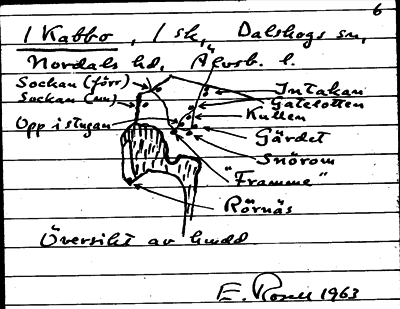 6
1 Kabbo, 1 sk, Dalskogs sn,
Nordals hd, Älvsb. l.
Sockan (förr)
Sockan (nu)
Opp i stugan
Intakan
Gatelotten
Kullen
Gärdet
Snörom
"Framme"
Rörnäs
Översikt av
E. 1963